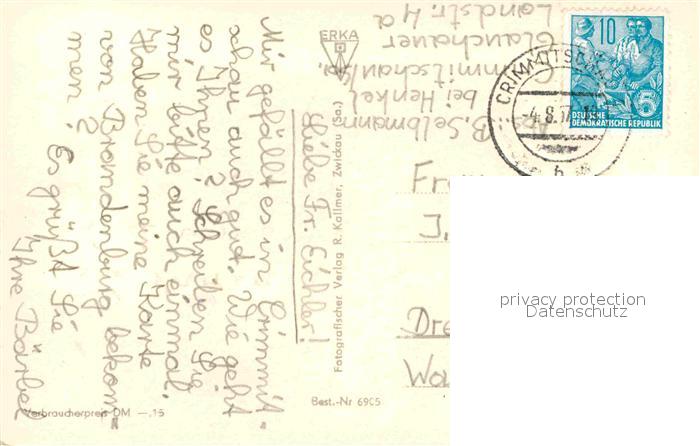 Liebe Fr. Eichler!
Mir gefällt es in Crimmit-
schau auch gut. Wie geht
es Ihnen? Schreiben Sie
mir bitte auch einmal.
Haben Sie meine Karte
von Brandenburg bekom-
men? Es grüßt Sie
Ihre Bärbel
B. Selbmann
bei Henkel
Crimmitschau/Sa.
Glauchauer
Landstr. 4a
ERKA
Fotografischer Verlag R. Kallmer, Zwickau (Sa.)
Best.-Nr 6905
Verbraucherpreis DM —.15
CRIMMITSCHAU
4.8.57
b
10
5
DEUTSCHE
DEMOKRATISCHE REPUBLIK
Fr
J.
Dre
Wa
privacy protection
Datenschutz